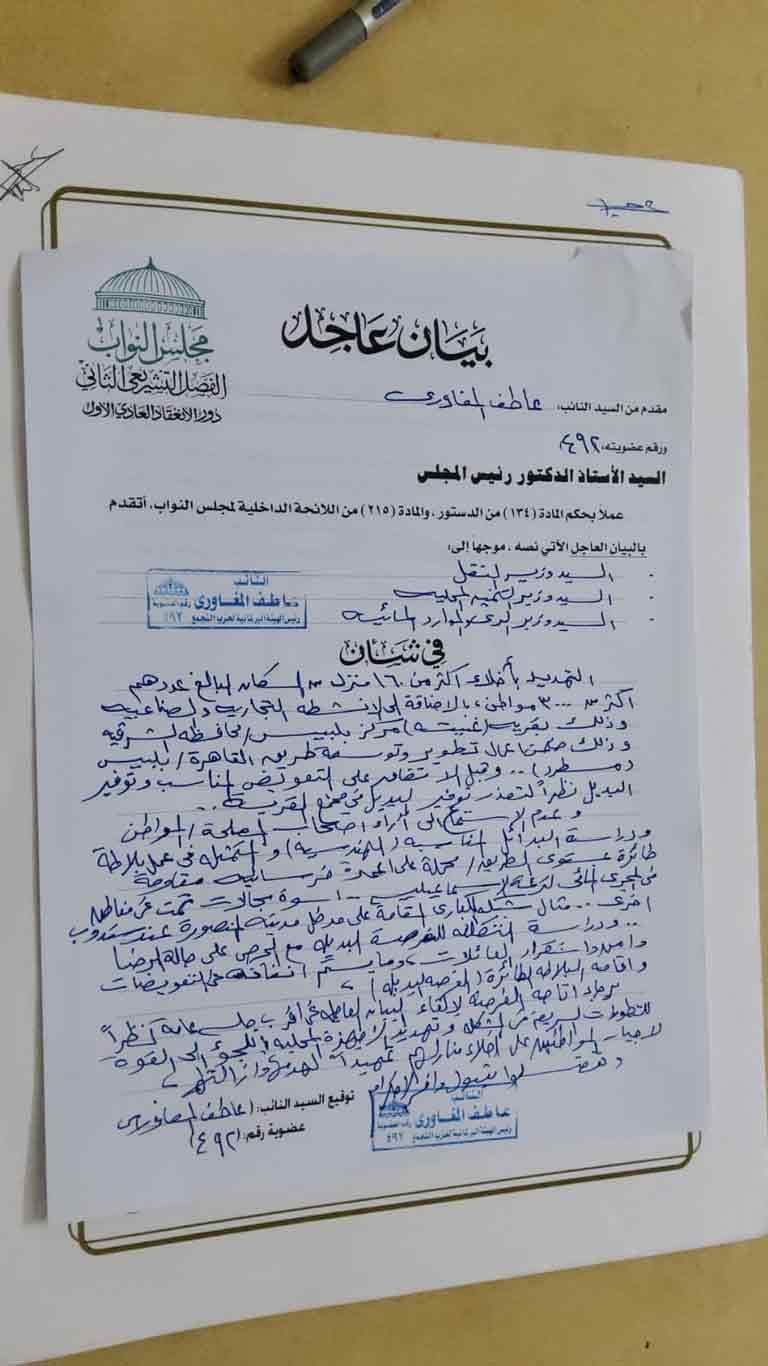 مجلس النواب
الفصل التشريعى الثانى
دور الانعقاد العادى الأول
بيان عاجل
مقدم من السيد النائب، عاطف المغاورى
ورقم عضويته، ٤٩٢
السيد الأستاذ الدكتور رئيس المجلس
عملاً بحكم المادة (١٣٤) من الدستور، والمادة (٢١٥) من اللائحة الداخلية لمجلس النواب، أتقدم
بالبيان العاجل الآتي نصه، موجها إلى:
- السيد وزير النقل
- السيد وزير التنمية المحلية
- السيد وزير الرى والموارد المائية
النائب
عاطف المغاورى رقم العضوية
رئيس الهيئة البرلمانية لحزب التجمع ٤٩٢
في شأن
التهديد بأخلاء أكثر من ١٦٠ منزل السكان البالغ عددهم
أكثر من ٣٠٠٠ مواطن، بالإضافة إلى الأنشطة التجارية والصناعية
وذلك بقرية (غيتة) مركز بلبيس / محافظة الشرقية
وذلك ضمن أعمال تطوير وتوسعة طريق القاهرة / بلبيس
(مسطرد) .. وقبل الاتفاق على التعويض المناسب وتوفير
البديل نظراً لتعذر توفير البديل القرية ..
وعدم الاستماع إلى آراء أصحاب المصلحة / المواطن
ودراسة البدائل المناسبة (الهندسية) والمتمثلة في عمل بلاطة
طائرة بمستوى الطريق / محملة على أعمدة خرسانية مقاومة
المجرى المائى لترعة الإسماعيلية .. أسوة بحالات تمت في مناطق
أخرى .. مثال الكبارى المقامة على مدخل مدينة المنصورة عند سندوب
.. ودراسة التكلفة للفرصة البديلة مع الحرص على حالة الرضا
وأمن واستقرار العائلات، وما يتم انفاقه في التعويضات
وإقامة البلاطة الطائرة (الفرصة البديلة)
برجاء اتاحة الفرصة لإلقاء البيان العاجل في أقرب جلسة عامة نظراً
للتطورات السريعة في المشكلة وتهديد الأجهزة المحلية اللجوء إلى القوة
لإجبار المواطنين على إخلاء منازلهم تمهيداً
وتفضلوا بقبول وافر الاحترام
توقيع السيد النائب: (عاطف المغاورى
عضوية رقم: (٤٩٢)
النائب
عاطف المغاورى رقم العضوية
رئيس الهيئة البرلمانية لحزب التجمع ٤٩٢